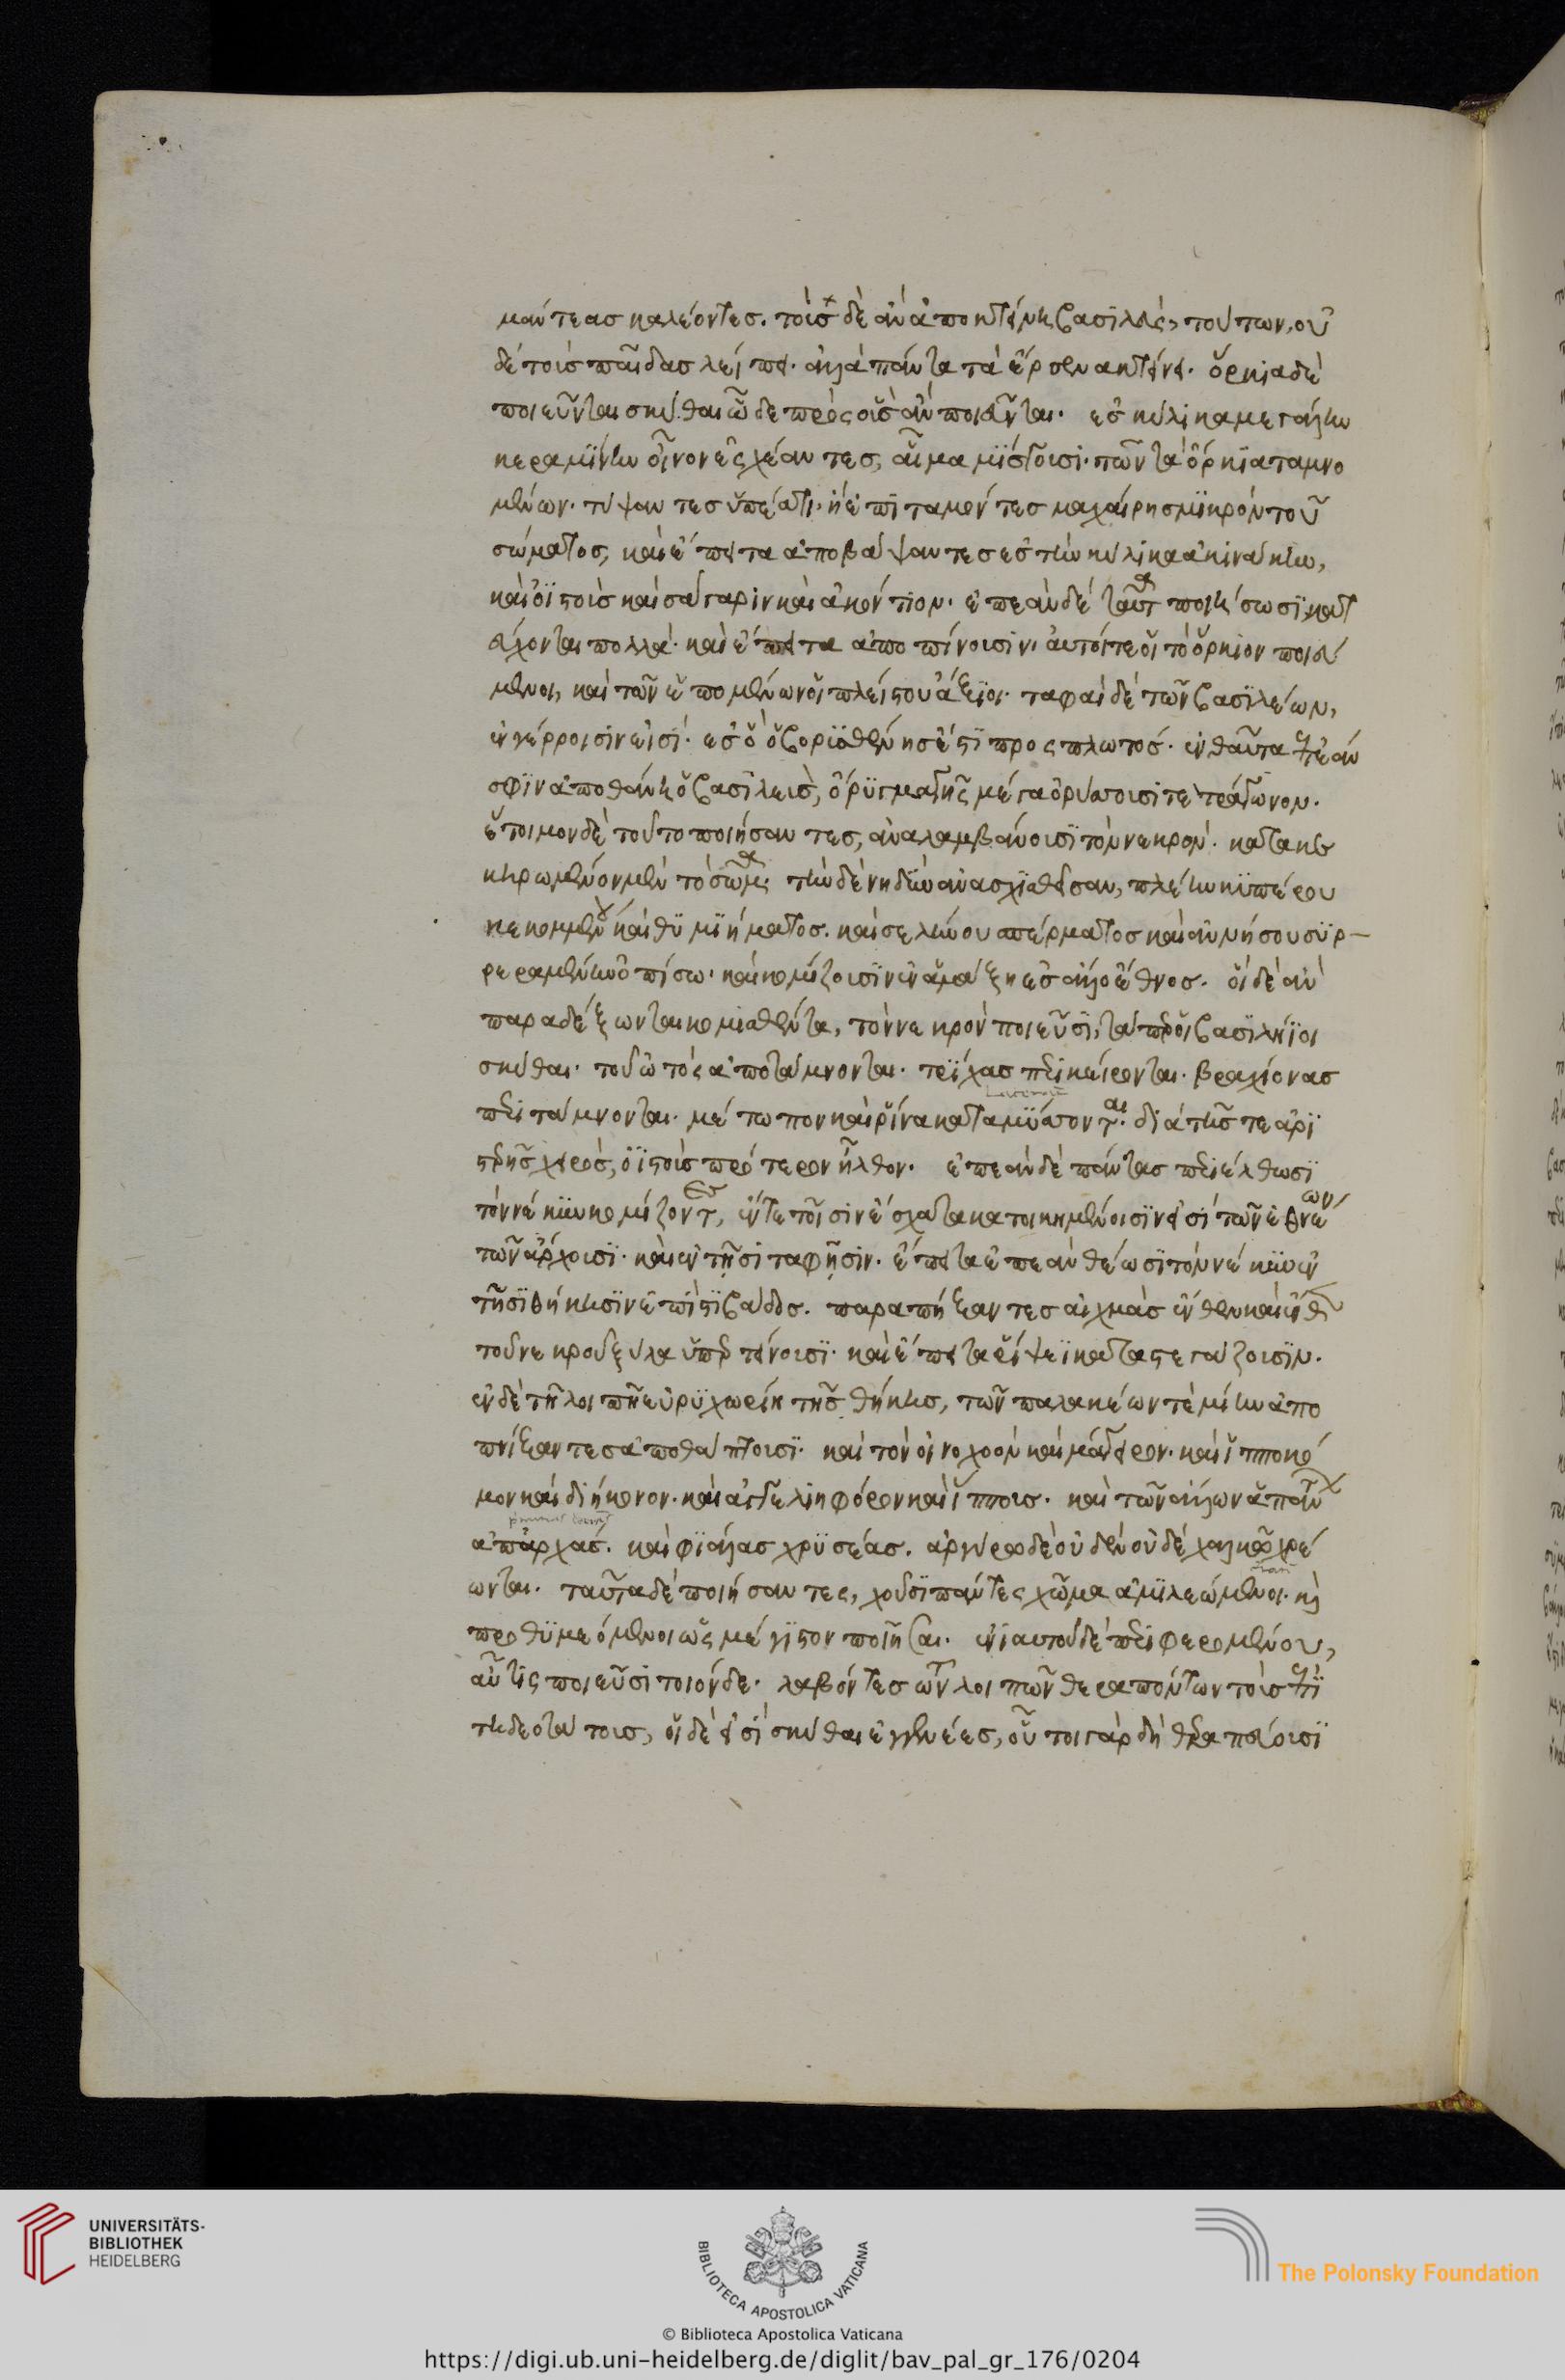 μάντεας καλέοντες. τοὺς δὲ ἂν ἀποκτείνῃ βασιλεὺς, τούτων, οὐ
δὲ τοὺς παῖδας λείπει. ἀλλὰ πάντα τὰ ἔρσενα κτείνει. ὅρκια δὲ
ποιεῦνται σκύθαι ὧδε πρὸς οὓς ἂν ποιεῦνται. ἐς κύλικα μεγάλην
κεραμίνην οἶνον ἐγχέαντες, αἷμα μίσγουσι τῶν τὰ ὅρκια ταμνο
μένων. τύψαντες ὑπέατι. ἢ ἐπιταμόντες μαχαίρῃ σμικρὸν τοῦ
σώματος, καὶ ἔπειτα ἀποβάψαντες ἐς τὴν κύλικα ἀκινάκην,
καὶ ὀϊστοὺς καὶ σάγαριν καὶ ἀκόντιον. ἐπεὰν δὲ ταῦτα ποιήσωσι, κατ
εύχονται πολλά. καὶ ἔπειτα ἀποπίνουσιν. αὐτοί τε οἱ τὸ ὅρκιον ποιεύ
μενοι, καὶ τῶν ἑπομένων οἱ πλείστου ἄξιοι. ταφαὶ δὲ τῶν βασιλέων,
ἐν γέρροισιν εἰσί. ἐς ὃ ὁ βορισθένης ἐστὶ προσπλωτός. ἐνθαῦτα ἐπεάν
σφιν ἀποθάνῃ ὁ βασιλεὺς, ὄρυγμα γῆς μέγα ὀρύσσουσι τετράγωνον.
ἕτοιμον δὲ τοῦτο ποιήσαντες, ἀναλαμβάνουσι τὸν νεκρόν. κατακε
κηρωμένον μὲν τὸ σῶμα. τὴν δὲ νηδὺν ἀνασχισθεῖσαν, πλέην κυπέρου
κεκομμένου καὶ θυμιήματος. καὶ σελίνου σπέρματος καὶ ἀννήσου συρ-
ρεραμένην ὀπίσω. καὶ κομίζουσιν ἐν ἁμάξῃ ἐς ἄλλο ἔθνος. οἳ δὲ ἂν
παραδέξωνται κομισθέντα, τὸν νεκρὸν ποιεῦσι, τάπερ οἱ βασιλήϊοι
σκύθαι. τοῦ ὠτὸς ἀποτάμνονται. τρίχας περικείρονται. βραχίονας
περιτάμνονται. μέτωπον καὶ ῥῖνα καταμύσσονται. διά τῆς τε ἀρι
στερῆς χειρὸς, ὀϊστοὺς πρότερον ἦλθον. ἐπεὰν δὲ πάντας περιέλθωσι
τὸν νέκυν κομίζοντες, ἔν τε τοῖσιν ἔσχατα κατοικημένοισιν εἰσὶ τῶν ἐθνέων
τῶν ἄρχουσι. καὶ ἐν τῇσι ταφῇσιν. ἔπειτα ἐπεὰν θέωσι τὸν νέκυν ἐν
τῇσι θήκῃσιν ἐπὶ στιβάδος. παραπήξαντες αἰχμὰς ἔνθεν καὶ ἔνθεν
τοῦ νεκροῦ ξύλα ὑπερτείνουσι. καὶ ἔπειτα ῥίψεϊ καταστεγάζουσιν.
ἐν δὲ τῇ λοιπῇ εὐρυχωρίῃ τῆς θήκης, τῶν παλακέων τὲ μίην ἀπο
πνίξαντες ἀποθάπτουσι. καὶ τὸν οἰνοχόον καὶ μάγειρον. καὶ ἱπποκό
μον καὶ διήκονον. καὶ ἀγγελιηφόρον καὶ ἵππους. καὶ τῶν ἄλλων ἁπάντων
ἀπαρχάς. καὶ φιάλας χρυσέας. ἀργύρῳ δὲ οὐδὲν οὐδὲ χαλκῷ χρέ
ωνται. ταῦτα δὲ ποιήσαντες, χοῦσι πάντες χῶμα ἀμιλεώμενοι. καὶ
προθυμεόμενοι ὡς μέγιστον ποιῆσαι. ἐνιαυτοῦ δὲ περιφερομένου,
αὖτις ποιεῦσι τοιόνδε. λαβόντες τῶν λοιπῶν θεραπόντων τοὺς ἐπι
τηδεοτάτους, οἱ δὲ εἰσὶ σκύθαι ἐγγενέες, οὗτοι γὰρ δὴ θεραπεύουσι
UNIVERSITÄTS-
BIBLIOTHEK
HEIDELBERG
BIBLIOTECA APOSTOLICA VATICANA
The Polonsky Foundation
© Biblioteca Apostolica Vaticana
https://digi.ub.uni-heidelberg.de/diglit/bav_pal_gr_176/0204